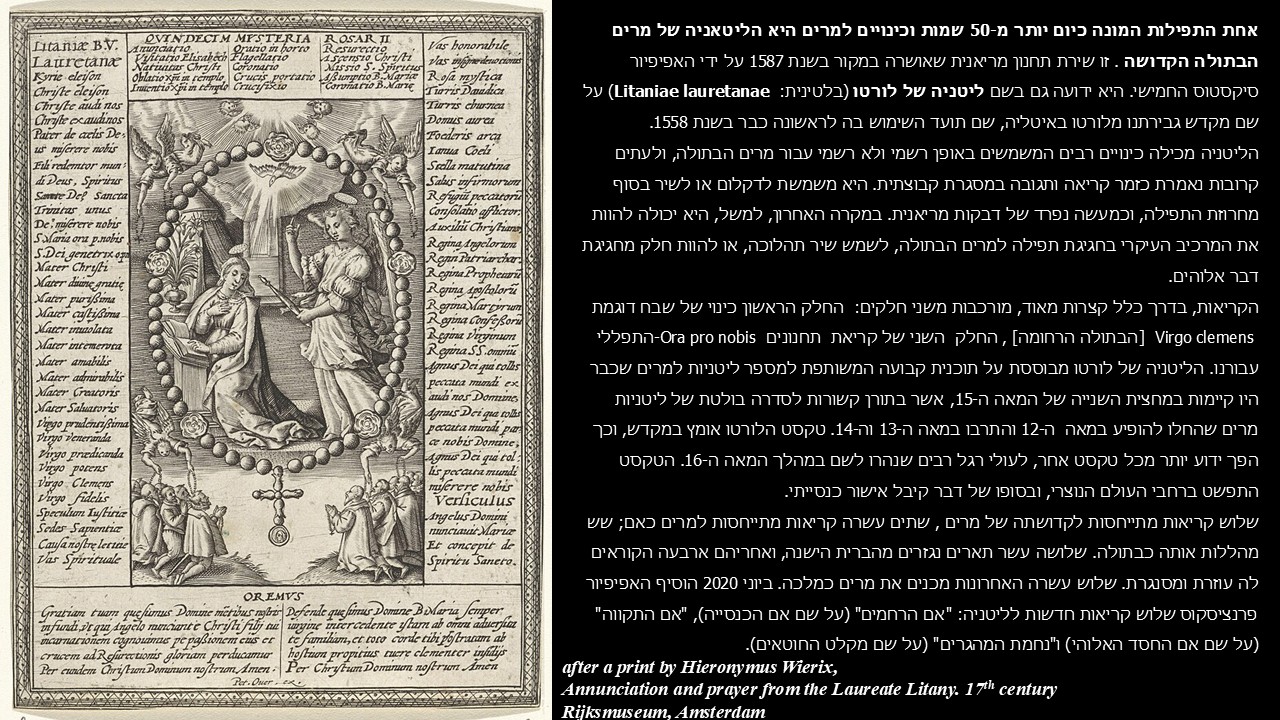 אחת התפילות המונה כיום יותר מ-50 שמות וכינויים למרים היא הליטאניה של מרים
הבתולה הקדושה . זו שירת תחנון מריאנית שאושרה במקור בשנת 1587 על ידי האפיפיור
סיקסטוס החמישי. היא ידועה גם בשם ליטניה של לורטו (בלטינית: Litaniae lauretanae) על
שם מקדש גבירתנו מלורטו באיטליה, שם תועד השימוש בה לראשונה כבר בשנת 1558.
הליטניה מכילה כינויים רבים המשמשים באופן רשמי ולא רשמי עבור מרים הבתולה, ולעתים
קרובות נאמרת כזמר קריאה ותגובה במסגרת קבוצתית. היא משמשת לדקלום או לשיר בסוף
מחרוזת התפילה, וכמעשה נפרד של דבקות מריאנית. במקרה האחרון, למשל, היא יכולה להוות
את המרכיב העיקרי בחגיגת תפילה למרים הבתולה, לשמש שיר תהלוכה, או להוות חלק מחגיגת
דבר אלוהים.
הקריאות, בדרך כלל קצרות מאוד, מורכבות משני חלקים: החלק הראשון כינוי של שבח דוגמת
Virgo clemens [הבתולה הרחומה] , החלק השני של קריאת תחנונים Ora pro nobis-התפללי
עבורנו. הליטניה של לורטו מבוססת על תוכנית קבועה המשותפת למספר ליטניות למרים שכבר
היו קיימות במחצית השנייה של המאה ה-15, אשר בתורן קשורות לסדרה בולטת של ליטניות
מרים שהחלו להופיע במאה ה-12 והתרבו במאה ה-13 וה-14. טקסט הלורטו אומץ במקדש, וכך
הפך ידוע יותר מכל טקסט אחר, לעולי רגל רבים שנהרו לשם במהלך המאה ה-16. הטקסט
התפשט ברחבי העולם הנוצרי, ובסופו של דבר קיבל אישור כנסייתי.
שלוש קריאות מתייחסות לקדושתה של מרים , שתים עשרה קריאות מתייחסות למרים כאם; שש
מהללות אותה כבתולה. שלושה עשר תארים נגזרים מהברית הישנה, ואחריהם ארבעה הקוראים
לה עוזרת ומסונגרת. שלוש עשרה האחרונות מכנים את מרים כמלכה. ביוני 2020 הוסיף האפיפיור
פרנציסקוס שלוש קריאות חדשות לליטניה: "אם הרחמים" (על שם אם הכנסייה), "אם התקווה"
(על שם אם החסד האלוהי) ו"נחמת המהגרים" (על שם מקלט החוטאים).
after a print by Hieronymus Wierix,
Annunciation and prayer from the Laureate Litany. 17th century
Rijksmuseum, Amsterdam
Litaniæ B.V.
Lauretanæ
Kyrie eleison
Christe eleison
Christe audi nos
Christe exaudi nos
Pater de cœlis De-
us miserere nobis
Fili redemtor mun-
di Deus, Spiritus
Sancte De9 Sancta
Trinitas unus
De9 miserere nobis
S. Maria ora p. nobis
S. Dei genetrix
Mater Christi
Mater divinæ gratiæ
Mater purissima
Mater castissima
Mater inuiolata
Mater intemerata
Mater amabilis
Mater admirabilis
Mater Creatoris
Mater Saluatoris
Virgo prudentissima
Virgo veneranda
Virgo prædicanda
Virgo potens
Virgo Clemens
Virgo fidelis
Speculum Iustitiæ
Sedes Sapientiæ
Causa nostræ letitiæ
Vas Spirituale
QVINDECIM MYSTERIA ROSARII
Anunciatio Oratio in horto Resurectio
Visitatio Elisabeth Flagellatio Ascensio Christi
Natiuitas Christi Coronatio Missio S. Spiritus
Oblatio in templo Crucis portatio Assumptio B. Mariæ
Inuentio in templo Crucifixio Coronatio B. Mariæ
Vas honorabile
Vas insigne deuotionis
Rosa mystica
Turris Dauidica
Turris eburnea
Domus aurea
Fœderis arca
Ianua Cœli
Stella matutina
Salus infirmorum
Refugiū peccatorū
Consolatio afflictor.
Auxiliū Christianor.
Regina Angelorum
Regin Patriarchar.
Regina Prophetarū
Regina Apostolorū
Regina Martyrum
Regina Confessorū
Regina Virginum
Regina SS. omniū
Agnus Dei qui tollis
peccata mundi ex
audi nos Domine,
Agnus Dei qui tollis
peccata mundi par
ce nobis Domine,
Agnus Dei qui tol:
lis peccata mundi
miserere nobis
Versiculus
Angelus Domini
nunciauit Mariæ
Et concepit de
Spiritu Sancto.
OREMVS
Gratiam tuam quesumus Domine mētibus nostris
infunde, vt qui Angelo nunciante Christi filij tui
incarnationem cognouimus pe passionem eius et
crucem ad Resurectionis gloriam perducamur
Per eundem Christum Dominum nostrum Amen.
Defende quesumus Domine B. Maria semper
uirgine intercedente istam ab omni aduersita
te familiam, et toto corde tibi prostratam ab
hostium propitius tuere clementer insidijs
Per Christum Dominum nostrum Amen
Pet. Ouer. ex.